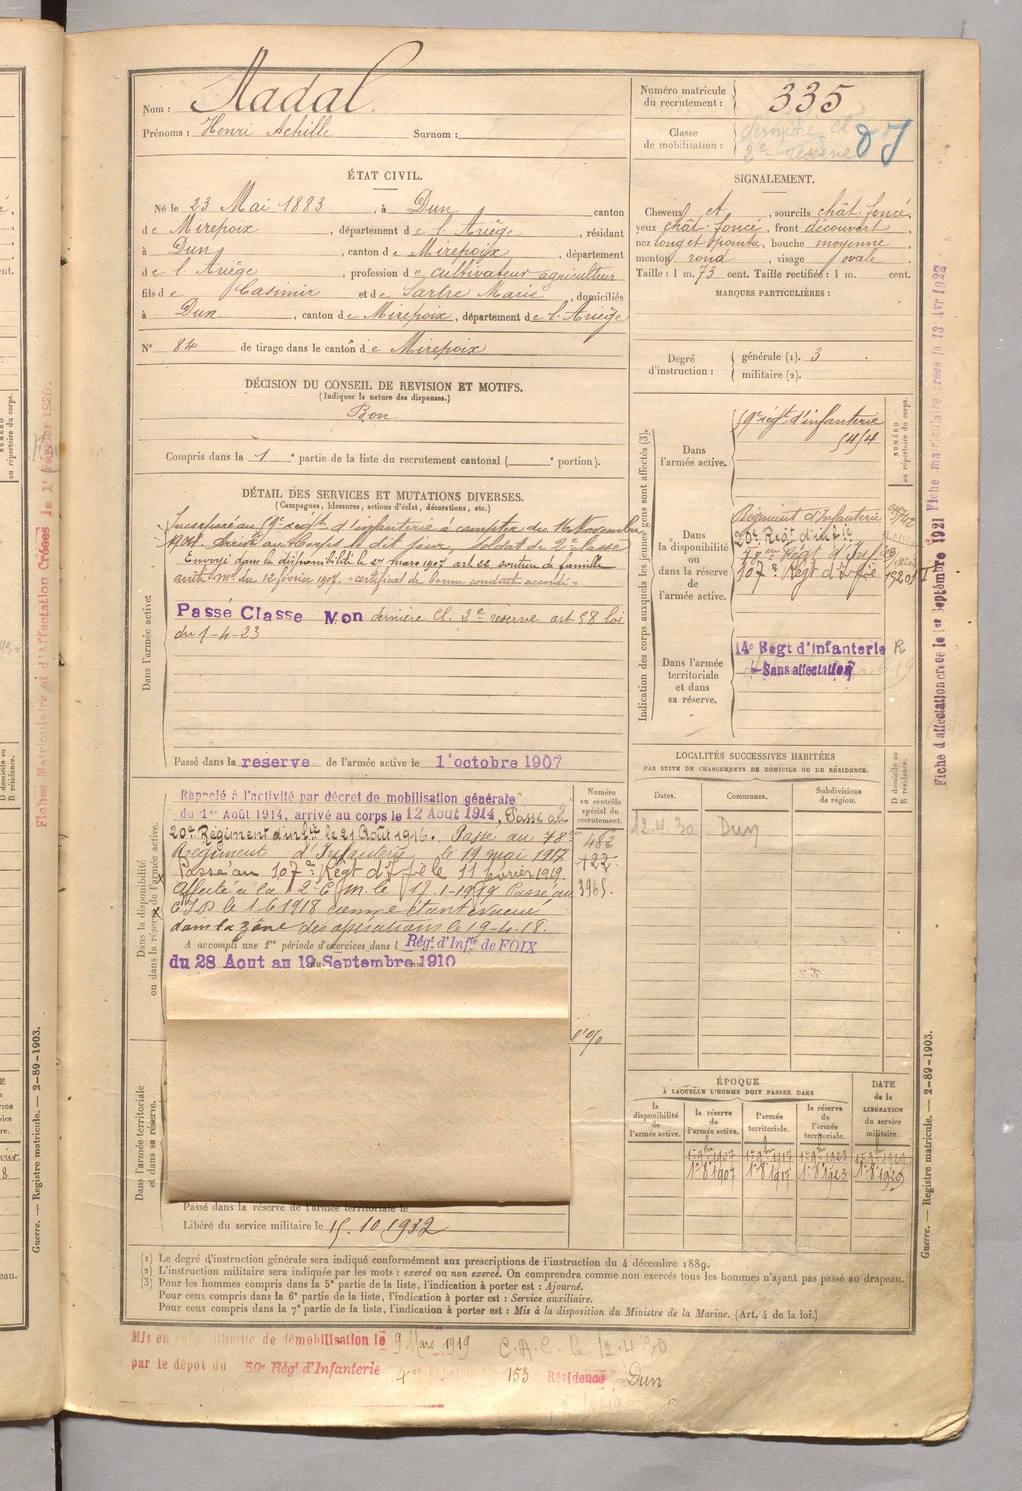 Nom : Nadal
Prénoms : Henri Achille Surnom :
Numéro matricule du recrutement : 335
Classe de mobilisation : dernière Cl
2e reserve
ÉTAT CIVIL.
Né le 23 Mai 1883, à Dun, canton
de Mirepoix, département de l'Ariège, résidant
à Dun, canton de Mirepoix, département
de l'Ariège, profession de cultivateur agriculteur
fils de Casimir et de Sartre Marie, domiciliés
à Dun, canton de Mirepoix, département de l'Ariège
N° 84 de tirage dans le canton de Mirepoix
SIGNALEMENT.
Cheveux et, sourcils chât. foncé,
yeux chât. foncé, front découvert,
nez long et pointu, bouche moyenne
menton rond, visage ovale
Taille : 1 m. 73 cent. Taille rectifiée : 1 m. cent.
MARQUES PARTICULIÈRES :
Degré d'instruction :
générale (1). 3
militaire (2).
DÉCISION DU CONSEIL DE REVISION ET MOTIFS.
(Indiquer la nature des dispenses.)
Bon
Compris dans la 1e partie de la liste du recrutement cantonal ( e portion).
DÉTAIL DES SERVICES ET MUTATIONS DIVERSES.
(Campagnes, blessures, actions d'éclat, décorations, etc.)
Dans l'armée active.
Incorporé au 59e régt d'infanterie à compter du 16 Novembre
1904. Arrivé au Corps le dit jour, soldat de 2e classe
Envoyé dans la disponibilité le 27 mars 1907 art 22 soutien de famille
arrêté Mel du 12 février 1907. certificat de bonne conduite accordé
Passé Classe Mon dernière Cl. 2e réserve art 58 loi
du 1-4-23
Passé dans la reserve de l'armée active le 1er octobre 1907
Dans la disponibilité
ou dans la réserve de l'armée active.
Rappelé à l'activité par décret de mobilisation générale
du 1er Août 1914, arrivé au corps le 12 Août 1914, Passé au
20e Régiment d'infie le 21 Août 1916. Passé au 78e
Régiment d'Infanterie le 19 mai 1917
Passé au 107e Régt d'Infie le 11 février 1919.
Affecté à la 2e C. m. le Passé au
C I D le 1 6 1918 comme étant évacué
dans la zône des opérations le 19-4-18.
A accompli une 1re période d'exercices dans l Régt d'Infie de FOIX
du 28 Aout au 19 Septembre 1910
Numéro au contrôle spécial du recrutement.
482
Dans l'armée territoriale
et dans sa réserve.
Passé dans la réserve de l'armée territoriale le
Libéré du service militaire le 15.10.1932
Indication des corps auxquels les jeunes gens sont affectés (3).
NUMÉRO au répertoire du corps.
Dans l'armée active.
59e régt d'infanterie
Dans la disponibilité ou dans la réserve de l'armée active.
Régiment d'Infanterie
20e Régt d'Infie
78eme Régt d'Inf
107e Régt d'Infie
Dans l'armée territoriale et dans sa réserve.
14e Régt d'infanterie
Sans affectation
LOCALITÉS SUCCESSIVES HABITÉES
PAR SUITE DE CHANGEMENTS DE DOMICILE OU DE RÉSIDENCE.
Dates. Communes. Subdivisions de région. D domicile ou R résidence.
12.4.30 Dun
ÉPOQUE
À LAQUELLE L'HOMME DOIT PASSER DANS
la disponibilité de l'armée active. la réserve de l'armée active. l'armée territoriale. la réserve de l'armée territoriale. DATE de la LIBÉRATION du service militaire.
(1) Le degré d'instruction générale sera indiqué conformément aux prescriptions de l'instruction du 4 décembre 1889.
(2) L'instruction militaire sera indiquée par les mots : exercé ou non exercé. On comprendra comme non exercés tous les hommes n'ayant pas passé au drapeau.
(3) Pour les hommes compris dans la 5e partie de la liste, l'indication à porter est : Ajourné.
Pour ceux compris dans la 6e partie de la liste, l'indication à porter est : Service auxiliaire.
Pour ceux compris dans la 7e partie de la liste, l'indication à porter est : Mis à la disposition du Ministre de la Marine. (Art. 4 de la loi.)
Mis en congé illimité de démobilisation le 9 Mars 1919
C.A.C. le 12.4.30
par le dépôt du 59e Régt d'Infanterie 4e échelon 153 Résidence Dun
Fiche d'affectation créée le 1er septembre 1921
Fiche matriculaire créée le 13 Avr 1922
Guerre. — Registre matricule. — 2-89-1903.
Fiches Matriculaire et d'Affectation Créées le 1er Février 1920.
Guerre. — Registre matricule. — 2-89-1903.